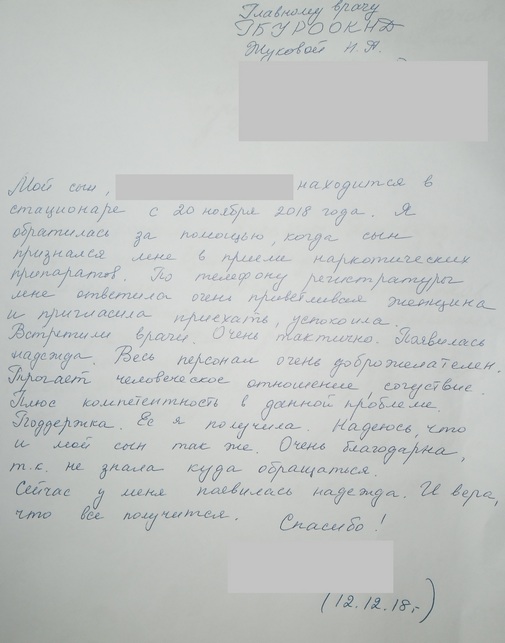 Главному врачу
ГБУ РО ОКНД
Жуковой Н. А.
Мой сын, находится в
стационаре с 20 ноября 2018 года. Я
обратилась за помощью, когда сын
признался мне в приеме наркотических
препаратов. По телефону регистратуры
мне ответила очень приветливая женщина
и пригласила приехать, успокоила.
Встретили врачи. Очень тактично. Появилась
надежда. Весь персонал очень доброжелателен.
Трогает человеческое отношение, сочуствие.
Плюс компетентность в данной проблеме.
Поддержка. Ее я получила. Надеюсь, что
и мой сын так же. Очень благодарна,
т.к. не знала куда обращаться.
Сейчас у меня появилась надежда. И вера,
что все получится. Спасибо!
(12.12.18г.)